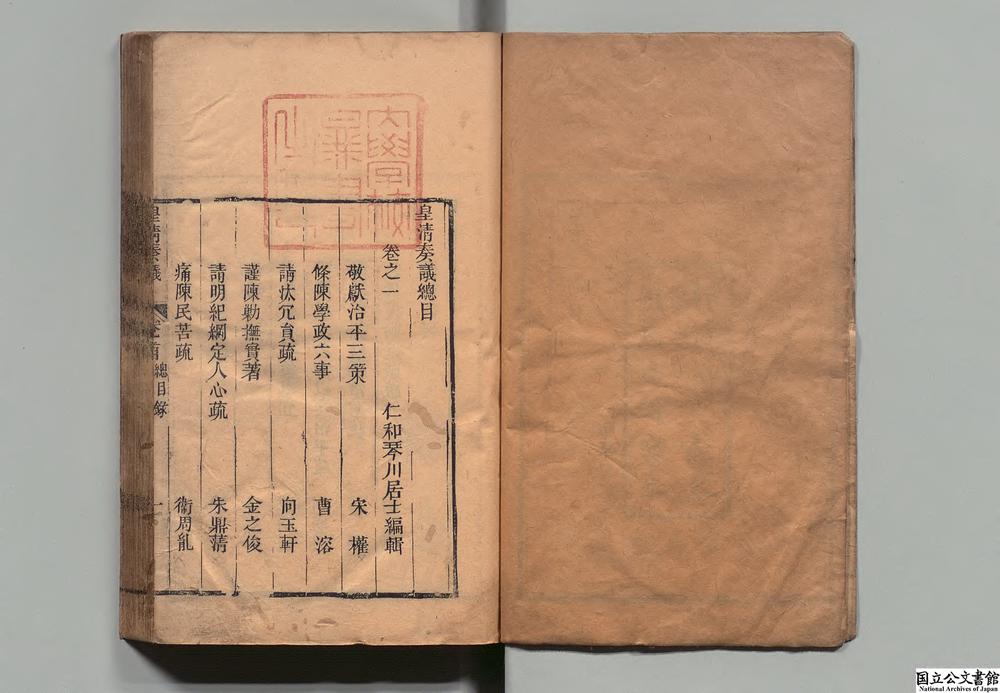 皇清奏議總目
卷之一 仁和琴川居士編輯
敬獻治平三策 宋權
條陳學政六事 曹溶
請汰冗員疏 向玉軒
謹陳勦撫實著 金之俊
請明紀綱定人心疏 朱鼎藻
痛陳民苦疏 衞周胤
皇清奏議 卷首 總目錄 一
国立公文書館
National Archives of Japan